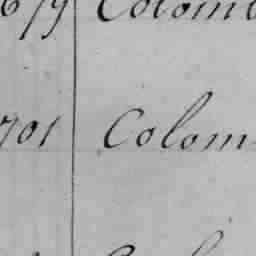 679 Colomb
701 Colom